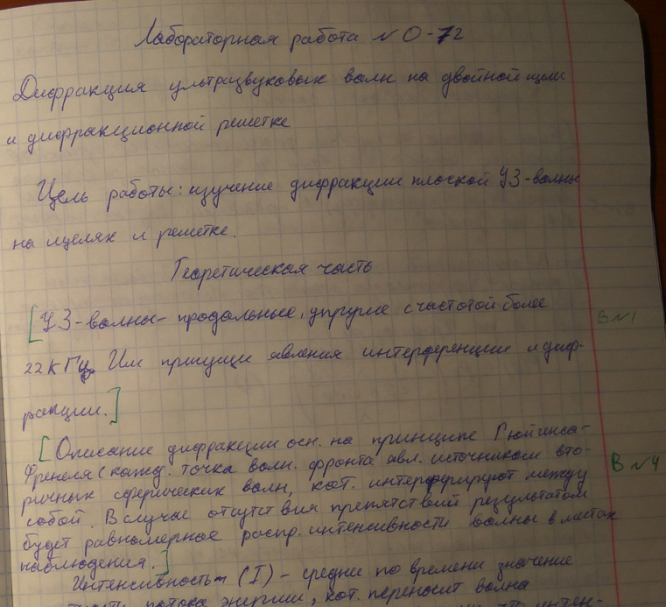 Лабораторная работа № О-72
Дифракция ультразвуковых волн на двойной щели
и дифракционной решетке
Цель работы: изучение дифракции плоской УЗ-волны
на щелях и решетке.
Теоретическая часть
[УЗ-волны- продольные, упругие с частотой более В №1
22 кГц. Им присущи явления интерференции и диф-
ракции.]
[Описание дифракции осн. на принципе Гюйгенса-
Френеля (кажд. точка волн. фронта явл. источником вто- В №4
ричных сферических волн, кот. интерферируют между
собой. В случае отсутствия препятствий результатом
будет равномерное распр. интенсивности волны в местах
наблюдения.]
Интенсивность (I) - среднее по времени значение
потока энергии, кот. переносит волна